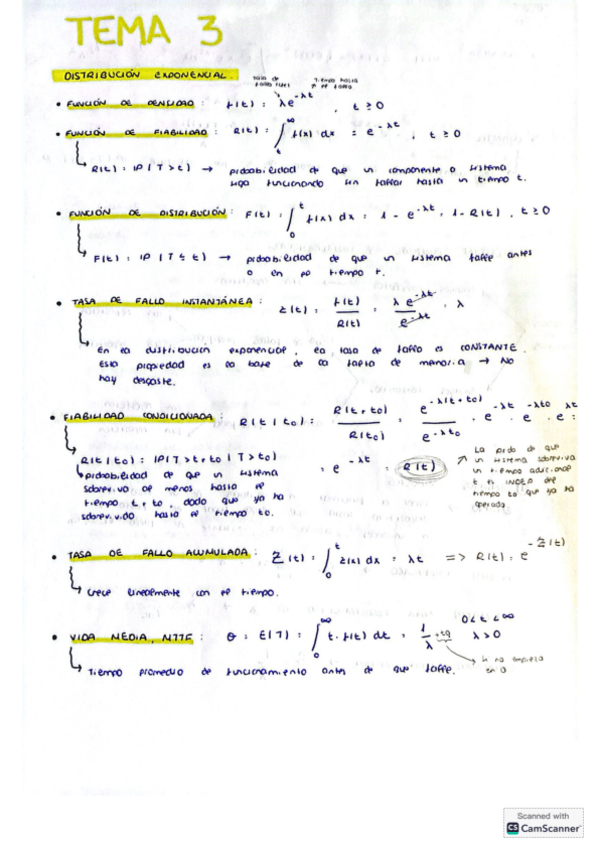 TEMA 3
DISTRIBUCIÓN EXPONENCIAL.
tasa de Tiempo hasta
• FUNCIÓN DE DENSIDAD: f(t) : λe^-λt , t ≥ 0
• FUNCIÓN DE FIABILIDAD: R(t) : ∫_t^∞ f(x) dx = e^-λt , t ≥ 0
R(t) : IP (T > t) → probabilidad de que un componente o sistema
siga funcionando sin fallar hasta un tiempo t.
• FUNCIÓN DE DISTRIBUCIÓN: F(t) : ∫_0^t f(x) dx : 1 - e^-λt : 1 - R(t) , t ≥ 0
F(t) : IP (T ≤ t) → probabilidad de que un sistema falle antes
o en el tiempo t.
• TASA DE FALLO INSTANTÁNEA: z(t) : f(t)/R(t) : λ e^-λt / e^-λt : λ
En la distribución exponencial, la tasa de fallo es CONSTANTE.
Esta propiedad es la base de la falta de memoria → NO
hay desgaste.
• FIABILIDAD CONDICIONADA: R(t | t0) : R(t + t0)/R(t0) : e^-λ(t + t0) / e^-λt0 : e^-λt · e^-λt0 · e^λt :
R(t | t0) : IP(T > t + t0 | T > t0) = e^-λt : R(t)
La prob de que
un sistema sobreviva
un tiempo adicional
t es INDEP del
tiempo t0 que ya ha
operado
probabilidad de que un sistema
sobreviva al menos hasta el
tiempo t + t0, dado que ya ha
sobrevivido hasta el tiempo t0.
• TASA DE FALLO ACUMULADA: Z(t) : ∫_0^t z(x) dx : λt => R(t) : e^-Z(t)
Crece linealmente con el tiempo.
• VIDA MEDIA, MTTF: θ : E(T) : ∫_0^∞ t · f(t) dt : 1/λ 0 < t < ∞
λ > 0
si no empieza
en 0
Tiempo promedio de funcionamiento antes de que falle.
Scanned with
CS CamScanner